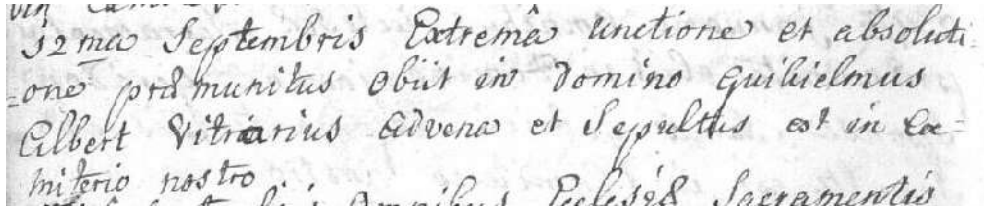 12ma Septembris Extremâ Unctione et absoluti-
-one præmunitus obiit in Domino Guilielmus
Albert Vitriarius Advena et Sepultus est in Coe-
miterio nostro
omnibus Ecclesiæ Sacramentis